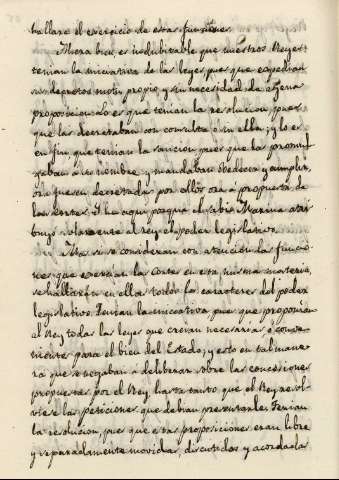 hallare el exercicio de estas funciones.
Ahora bien es indubitable que nuestros Reyes
tenian la iniciativa de las leyes pues que expedian
sus decretos motu propio y sin necesidad de agena
proposicion: lo es que tenian la resolucion, pues
que las decretaban con consulta ó sin ella; y lo es
en fin que tenian la sancion pues que las promul
gaban á su nombre, y mandaban obedecer y cumplir,
ora fuesen decretadas por ellos ora á propuesta de
las Cortes. I he aqui porque el sabio Marina atri
buyó solamente al rey el poder legislativo.
Mas si se consideran con atencion las funcio
nes que exercian las Cortes en esta misma materia,
se hallarán en ellas todos los caracteres del poder
legislativo. Tenian la iniciativa pues que proponian
al Rey todas las leyes que creian necesarias ó conve
nientes para el bien del Estado; y esto en tal mane
ra que se negaban á deliberar sobre las concesiones
propuestas por el Rey, hasta tanto que el Rey resol
viese las peticiones que debian presentarle. Tenian
la resolucion, pues que estas proposiciones eran libre
y separadamente movidas, discutidas y acordadas